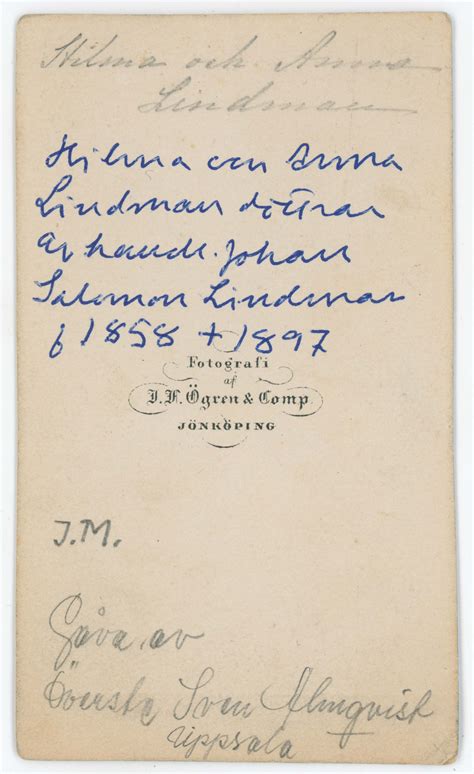 Hilma och Anna
Lindman
Hilma och Anna
Lindman döttrar
av handl. Johan
Salomon Lindman
f 1858 + 1897
Fotografi
af
J.F. Ögren & Comp.
JÖNKÖPING
J.M.
Gåva av
Överste Sven Almqvist
Uppsala